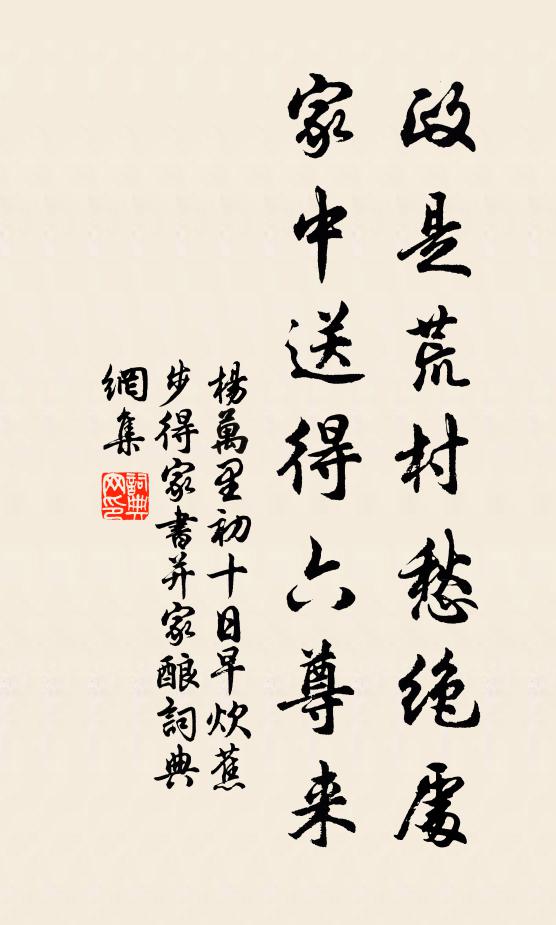 政是荒村愁绝處
家中送得六尊来
楊萬里初十日早炊蕉
步得家書并家酿詞典
網集
詞典網印